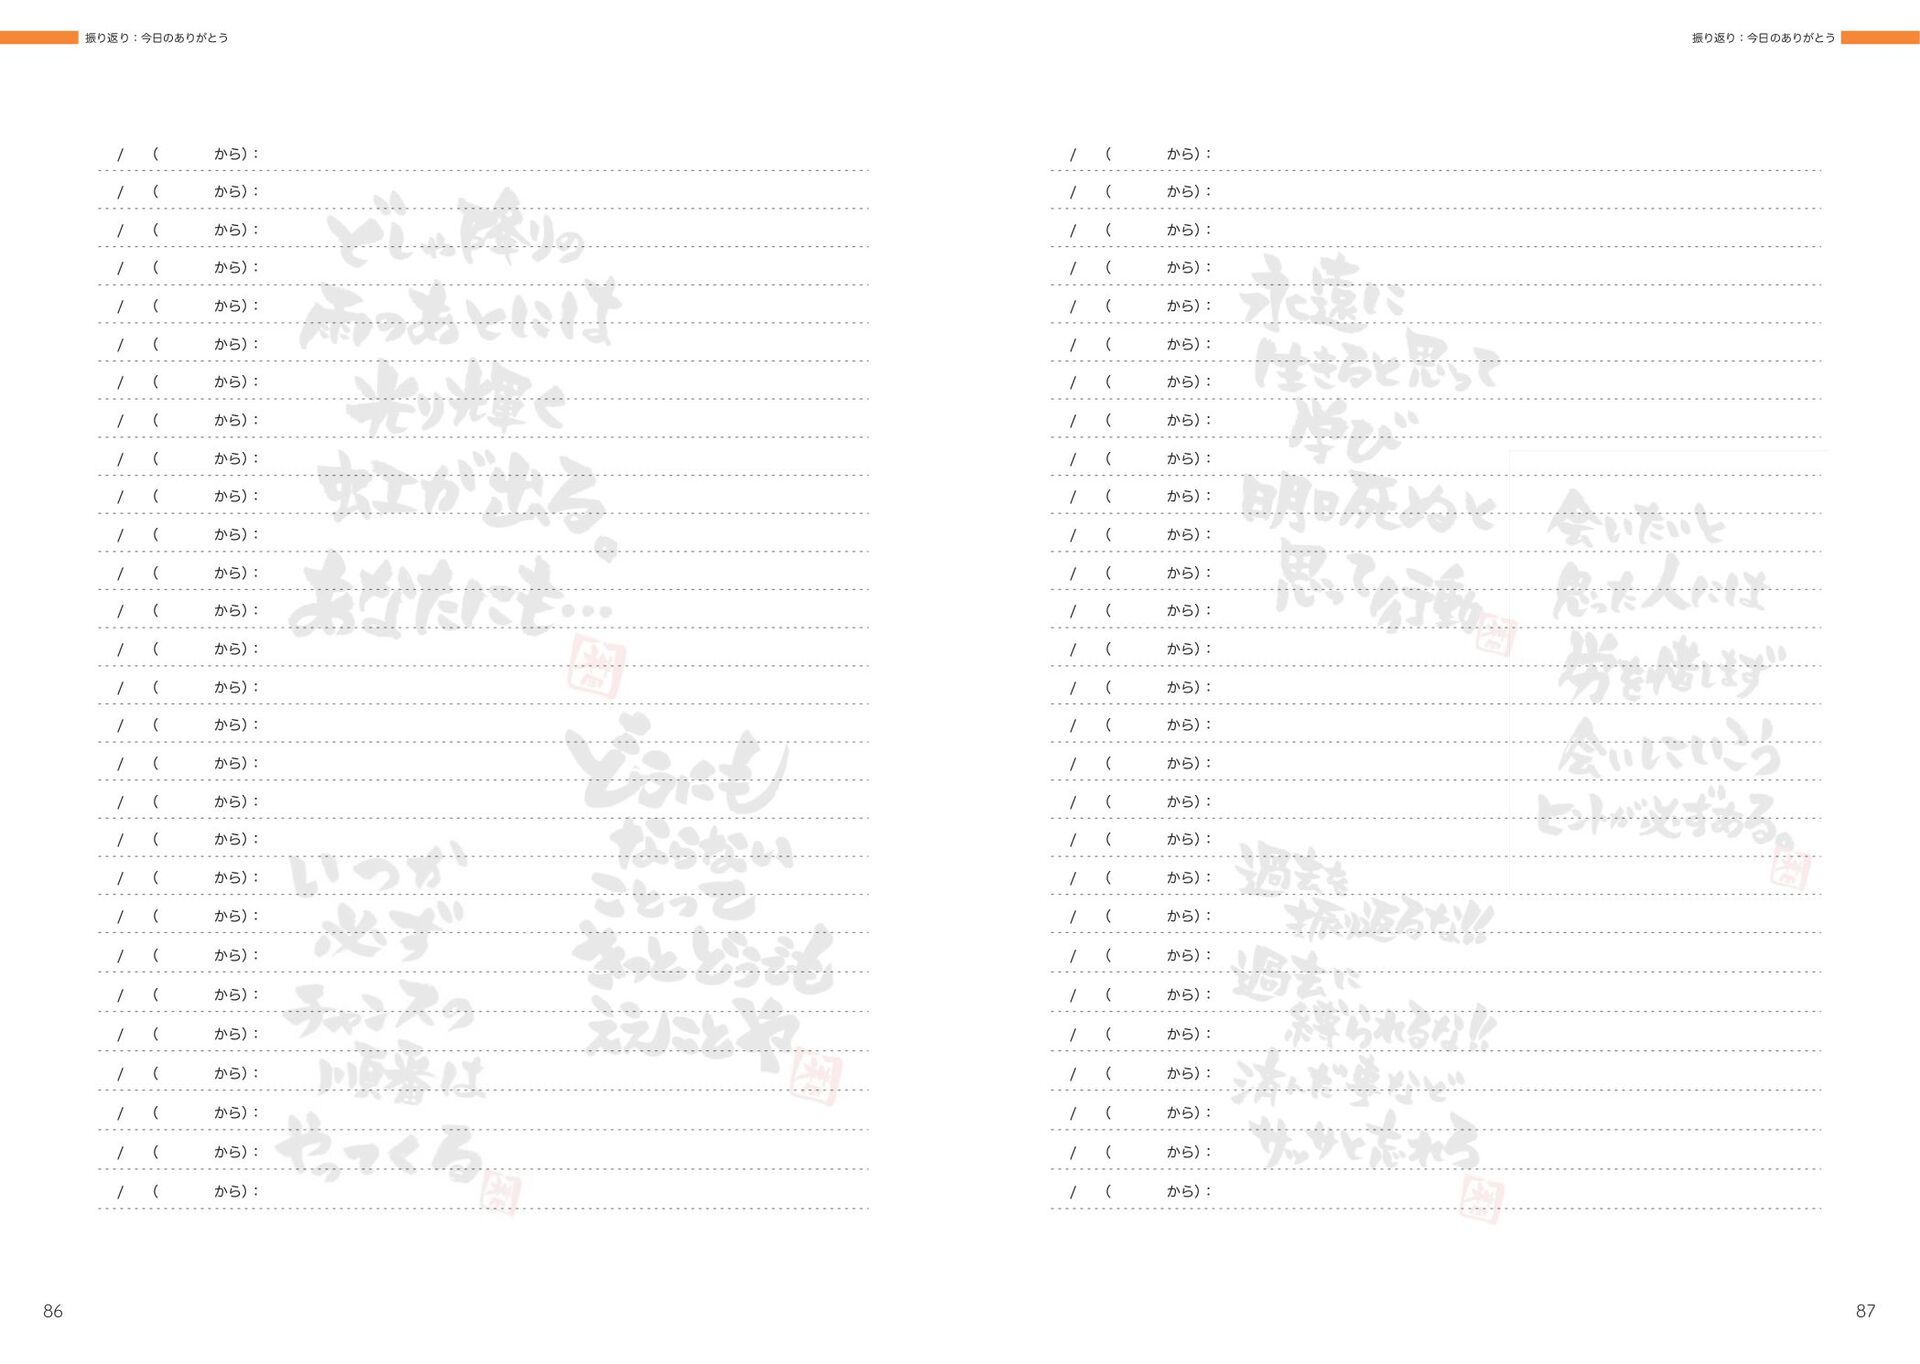 振り返り：今日のありがとう
/ ( から)：
/ ( から)：
/ ( から)：
/ ( から)：
/ ( から)：
/ ( から)：
/ ( から)：
/ ( から)：
/ ( から)：
/ ( から)：
/ ( から)：
/ ( から)：
/ ( から)：
/ ( から)：
/ ( から)：
/ ( から)：
/ ( から)：
/ ( から)：
/ ( から)：
/ ( から)：
/ ( から)：
/ ( から)：
/ ( から)：
/ ( から)：
/ ( から)：
/ ( から)：
/ ( から)：
/ ( から)：
どしゃ降りの
雨のあとには
光り輝く
虹が出る。
あなたにも…
どうにも
ならない
ことって
きっとどうでも
ええことや
いつか
必ず
チャンスの
順番は
やってくる
86
振り返り：今日のありがとう
/ ( から)：
/ ( から)：
/ ( から)：
/ ( から)：
/ ( から)：
/ ( から)：
/ ( から)：
/ ( から)：
/ ( から)：
/ ( から)：
/ ( から)：
/ ( から)：
/ ( から)：
/ ( から)：
/ ( から)：
/ ( から)：
/ ( から)：
/ ( から)：
/ ( から)：
/ ( から)：
/ ( から)：
/ ( から)：
/ ( から)：
/ ( から)：
/ ( から)：
/ ( から)：
/ ( から)：
/ ( から)：
永遠に
生きると思って
学び
明日死ぬと
思って行動
会いたいと
思った人には
労を惜しまず
会いにいこう
ヒントが必ずある。
過去を
振り返るな!!
過去に
縛られるな!!
済んだ事など
サッサと忘れろ
87